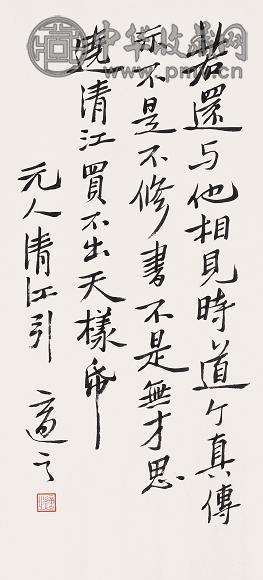 若還与他相見時道个真傳
示不是不修書不是無才思
遶清江買不出天樣帋
元人清江引 適之
中华收藏网